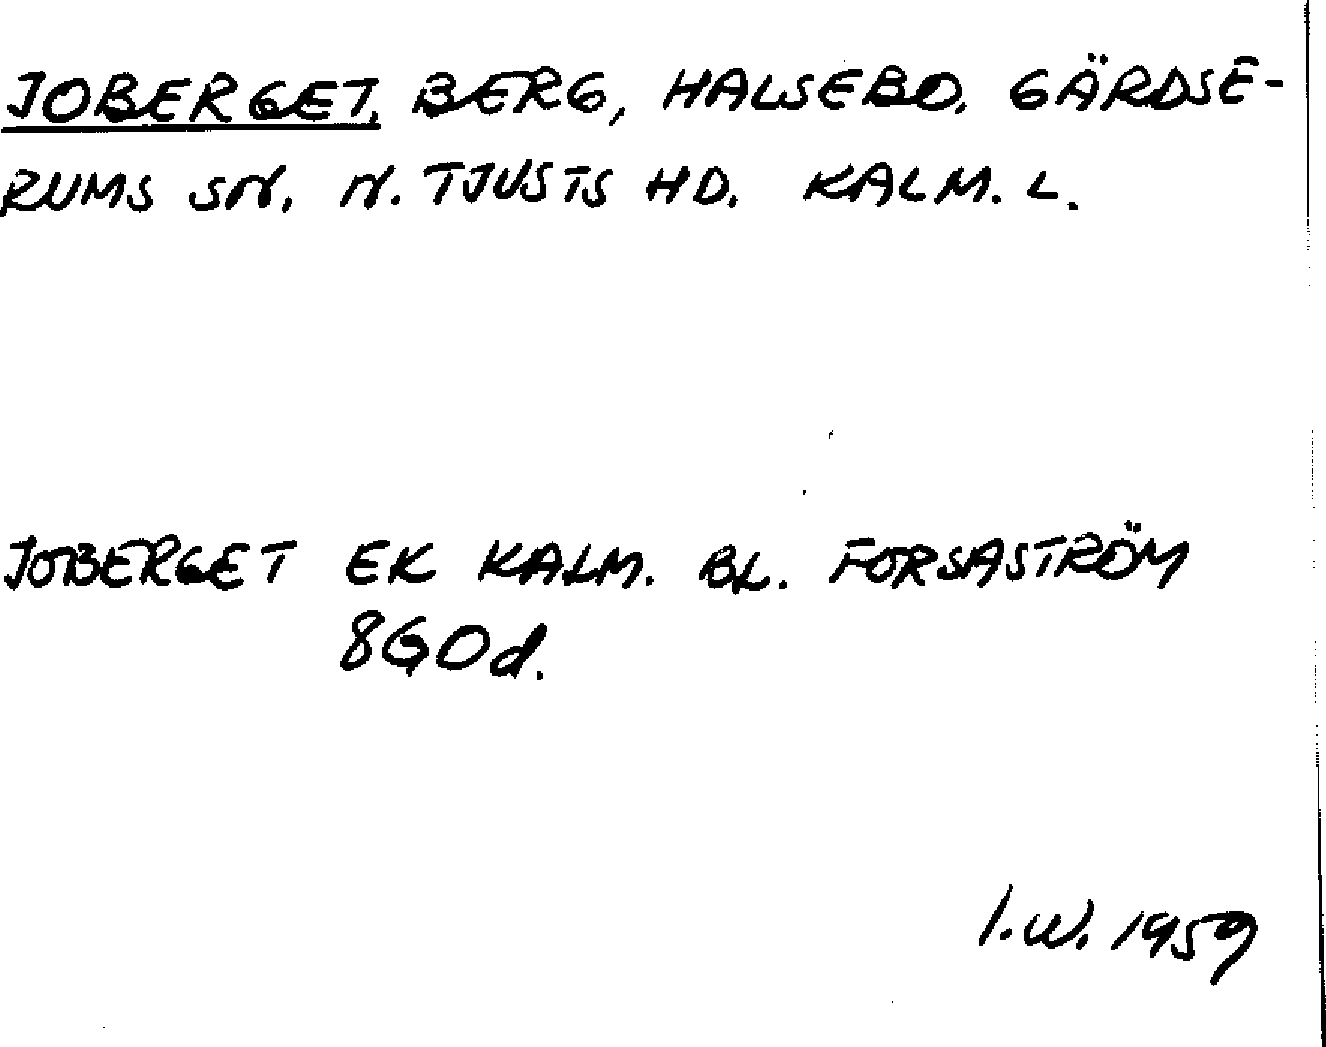 JOBERGET, BERG, HALSEBO, GÄRDSE-
RUMS SN. N. TJUSTS HD. KALM. L.
JOBERGET EK KALM. BL. FORSASTRÖM
8GOd.
I.W. 1959